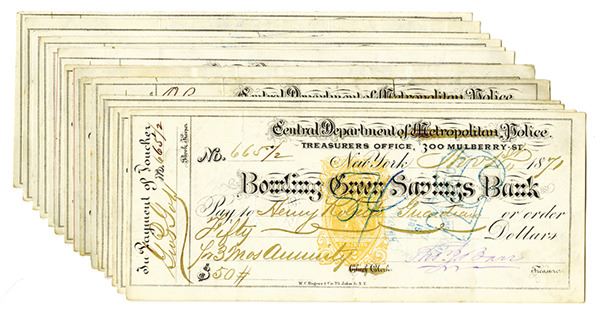 Central Department of Metropolitan Police.
Central Department of Metropolitan Police.
TREASURERS OFFICE, 300 MULBERRY-ST.
No. 665 1/2
New York 1871
Bowling Green Savings Bank
Pay to Henry Guardian or order
Fifty Dollars
for 3 Mos Annuity
$50 #
Chief Clerk. Treasurer
In Payment of Voucher
No. 665 1/2